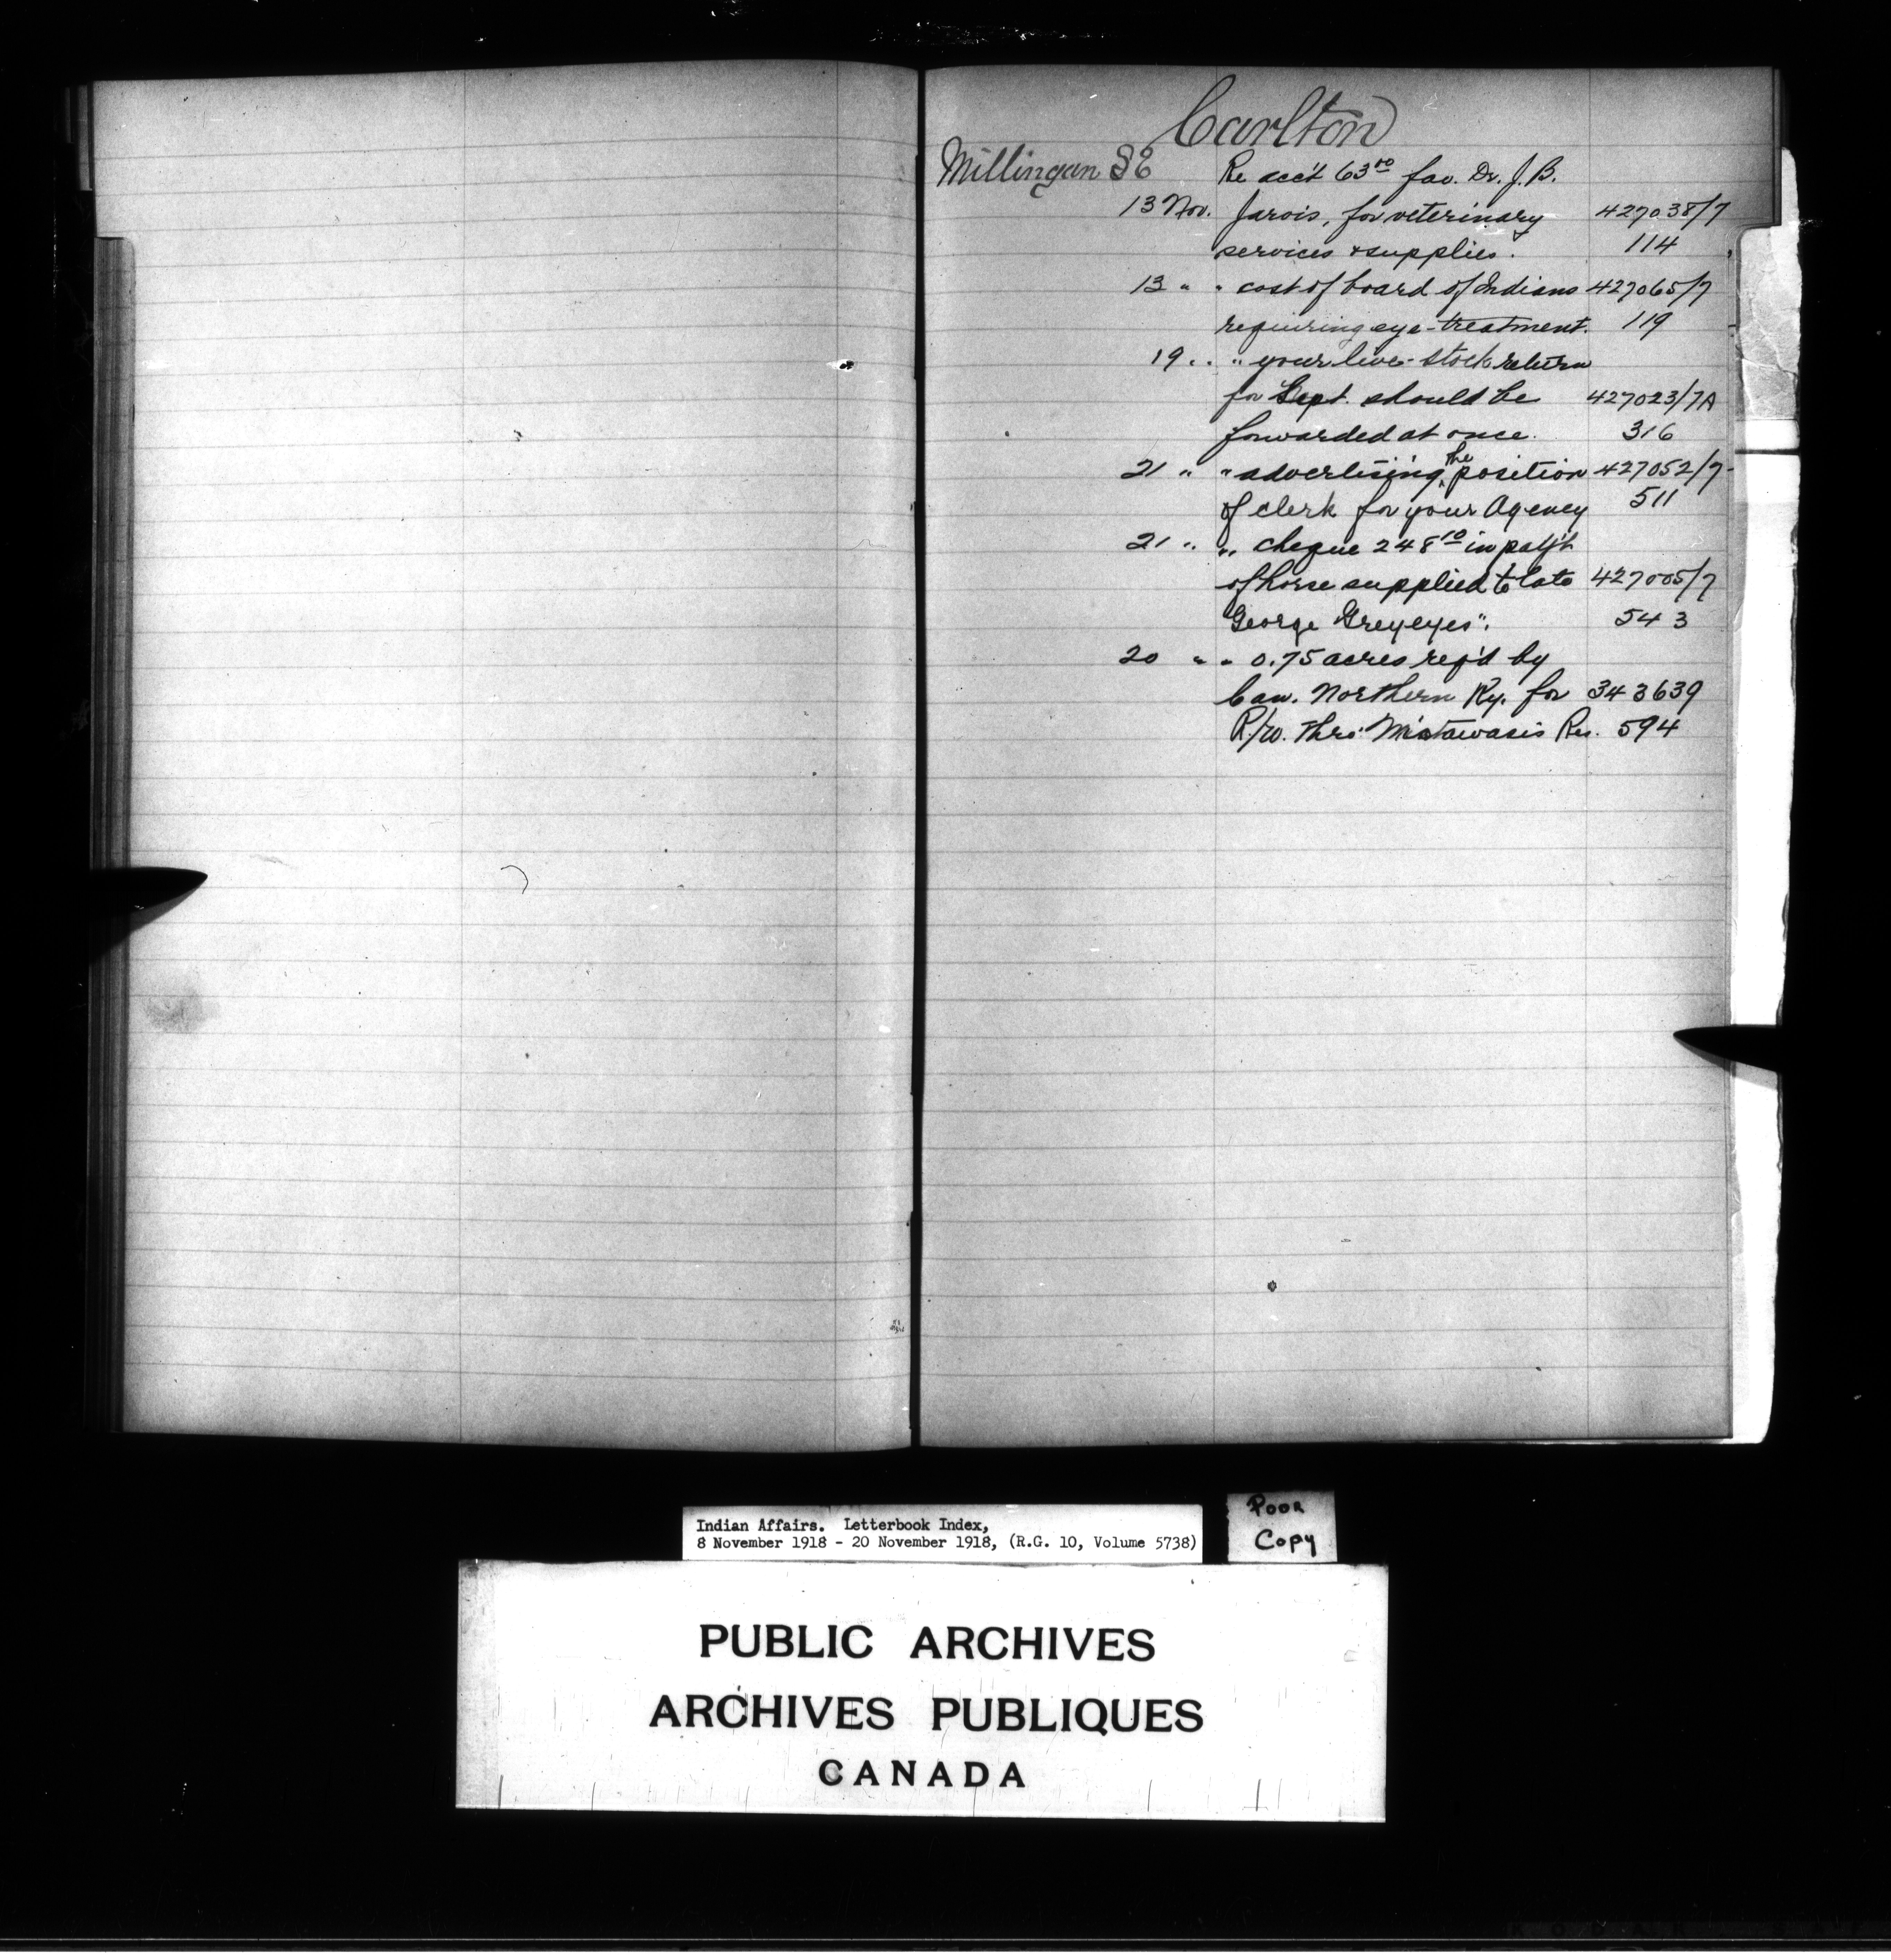 Carlton
Millingan S E Re acc't 63.50 fav. Dr. J. B.
13 Nov. Jarvis, for veterinary 427038/7
services & supplies. 114
13 " " cost of board of Indians 427065/7
requiring eye-treatment. 119
19 " " your live-stock return
for Sept. should be 427023/7A
forwarded at once. 316
21 " " advertising the position 427052/7
of clerk for your Agency 511
21 " " cheque 248.10 in pay't
of horse supplied to late 427005/7
George Greyeyes". 543
20 " " 0.75 acres req'd by
Can. Northern Ry. for 343639
R/w. thro' Mistawasis Res. 594
Indian Affairs. Letterbook Index,
8 November 1918 - 20 November 1918, (R.G. 10, Volume 5738)
Poor
Copy
PUBLIC ARCHIVES
ARCHIVES PUBLIQUES
CANADA